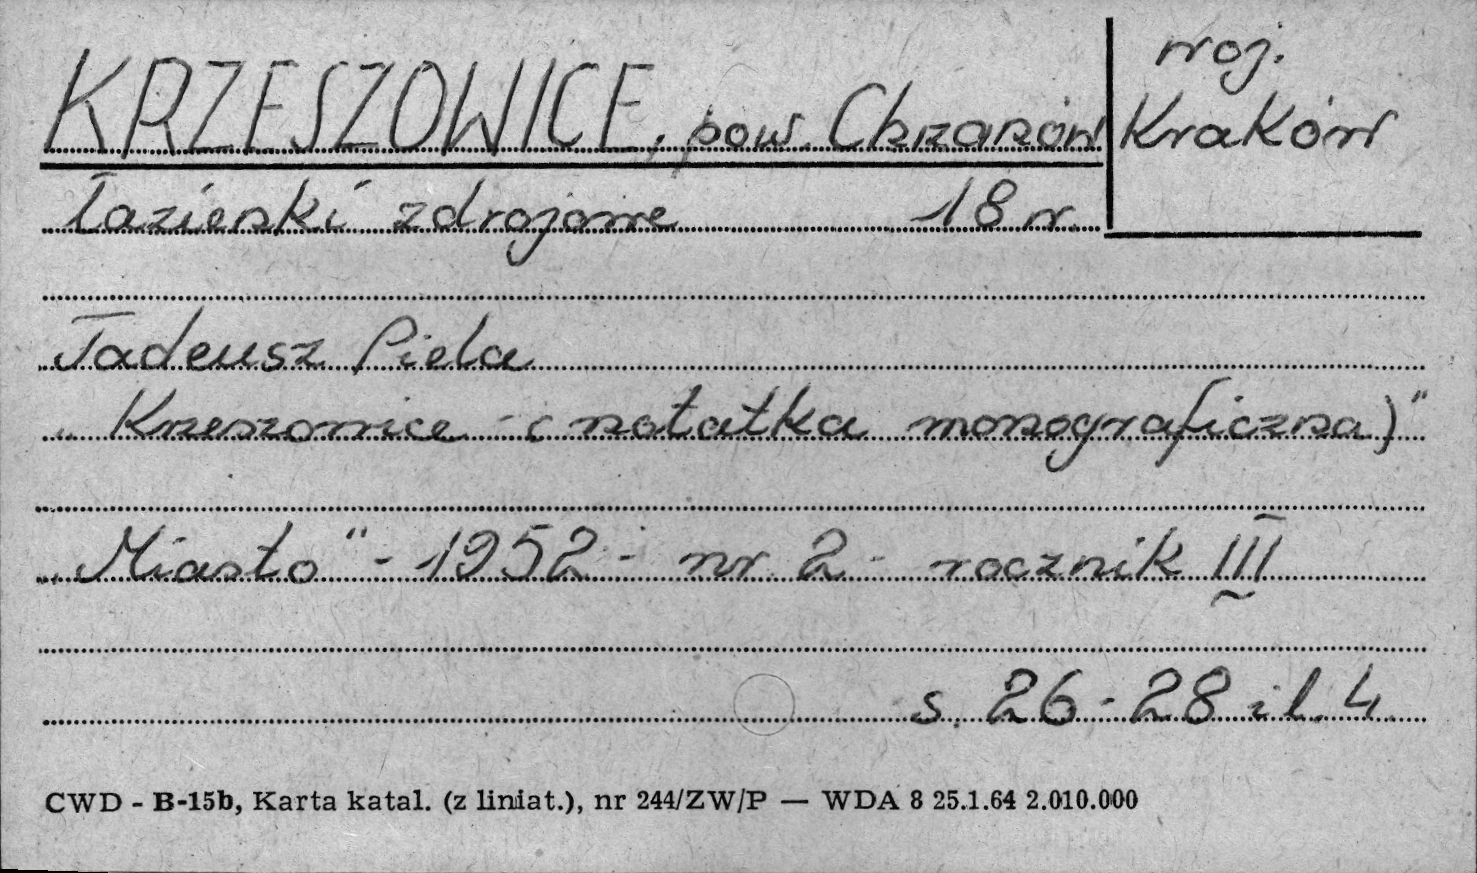 KRZESZOWICE, pow. Chrzanów
woj.
Kraków
Łazienki zdrojowe 18 w.
Tadeusz Piela
„Krzeszowice - (notatka monograficzna)"
„Miasto" - 1952 - nr 2 - rocznik III
s. 26-28 il. 4
CWD - B-15b, Karta katal. (z liniat.), nr 244/ZW/P — WDA 8 25.1.64 2.010.000